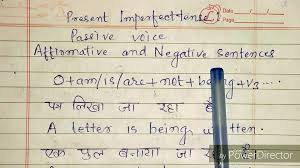 Present Imperfect tense
Passive voice
Affirmative and Negative sentences
O+am/is/are+not+being+V3...
पत्र लिखा जा रहा है
A letter is being written.
एक पुल बनाया जा रहा
PowerDirector